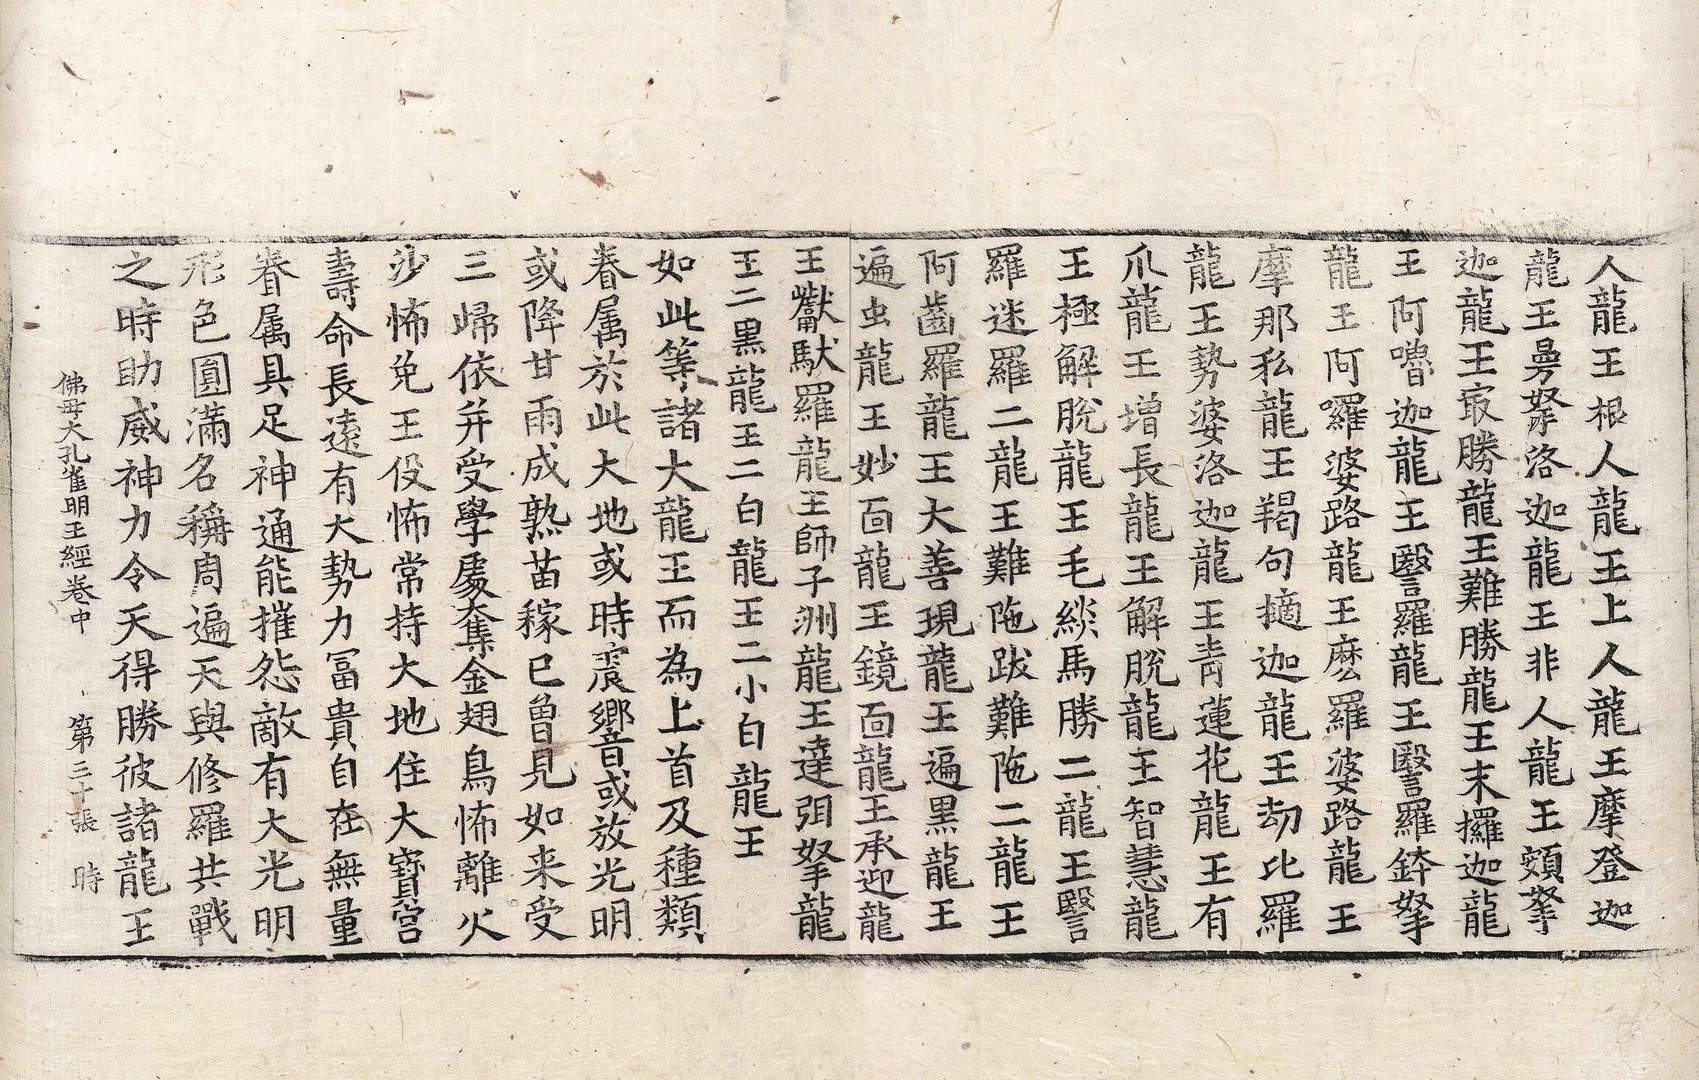 人龍王根人龍王上人龍王摩登迦
龍王曼拏洛迦龍王非人龍王頞拏
迦龍王最勝龍王難勝龍王末攞迦龍
王阿嚕迦龍王瑿羅龍王瑿羅鉢拏
龍王阿囉婆路龍王麽羅婆路龍王
摩那私龍王羯句擿迦龍王劫比羅
龍王勢婆洛迦龍王青蓮花龍王有
爪龍王增長龍王解脫龍王智慧龍
王極解脫龍王毛緂馬勝二龍王瑿
羅迷羅二龍王難陁跋難陁二龍王
阿齒羅龍王大善現龍王遍黑龍王
遍虫龍王妙面龍王鏡面龍王承迎龍
王巘馱羅龍王師子洲龍王達弭拏龍
王二黑龍王二白龍王二小白龍王
如此等諸大龍王而為上首及種類
眷属於此大地或時震響或放光明
或降甘雨成熟苗稼已曾見如来受
三歸依并受學處奪金翅鳥怖離火
沙怖免王役怖常持大地住大寶宫
壽命長遠有大勢力冨貴自在無量
眷属具足神通能摧怨敵有大光明
形色圓滿名稱周遍天與修羅共戰
之時助威神力令天得勝彼諸龍王
佛母大孔雀明王經卷中 第三十張 時